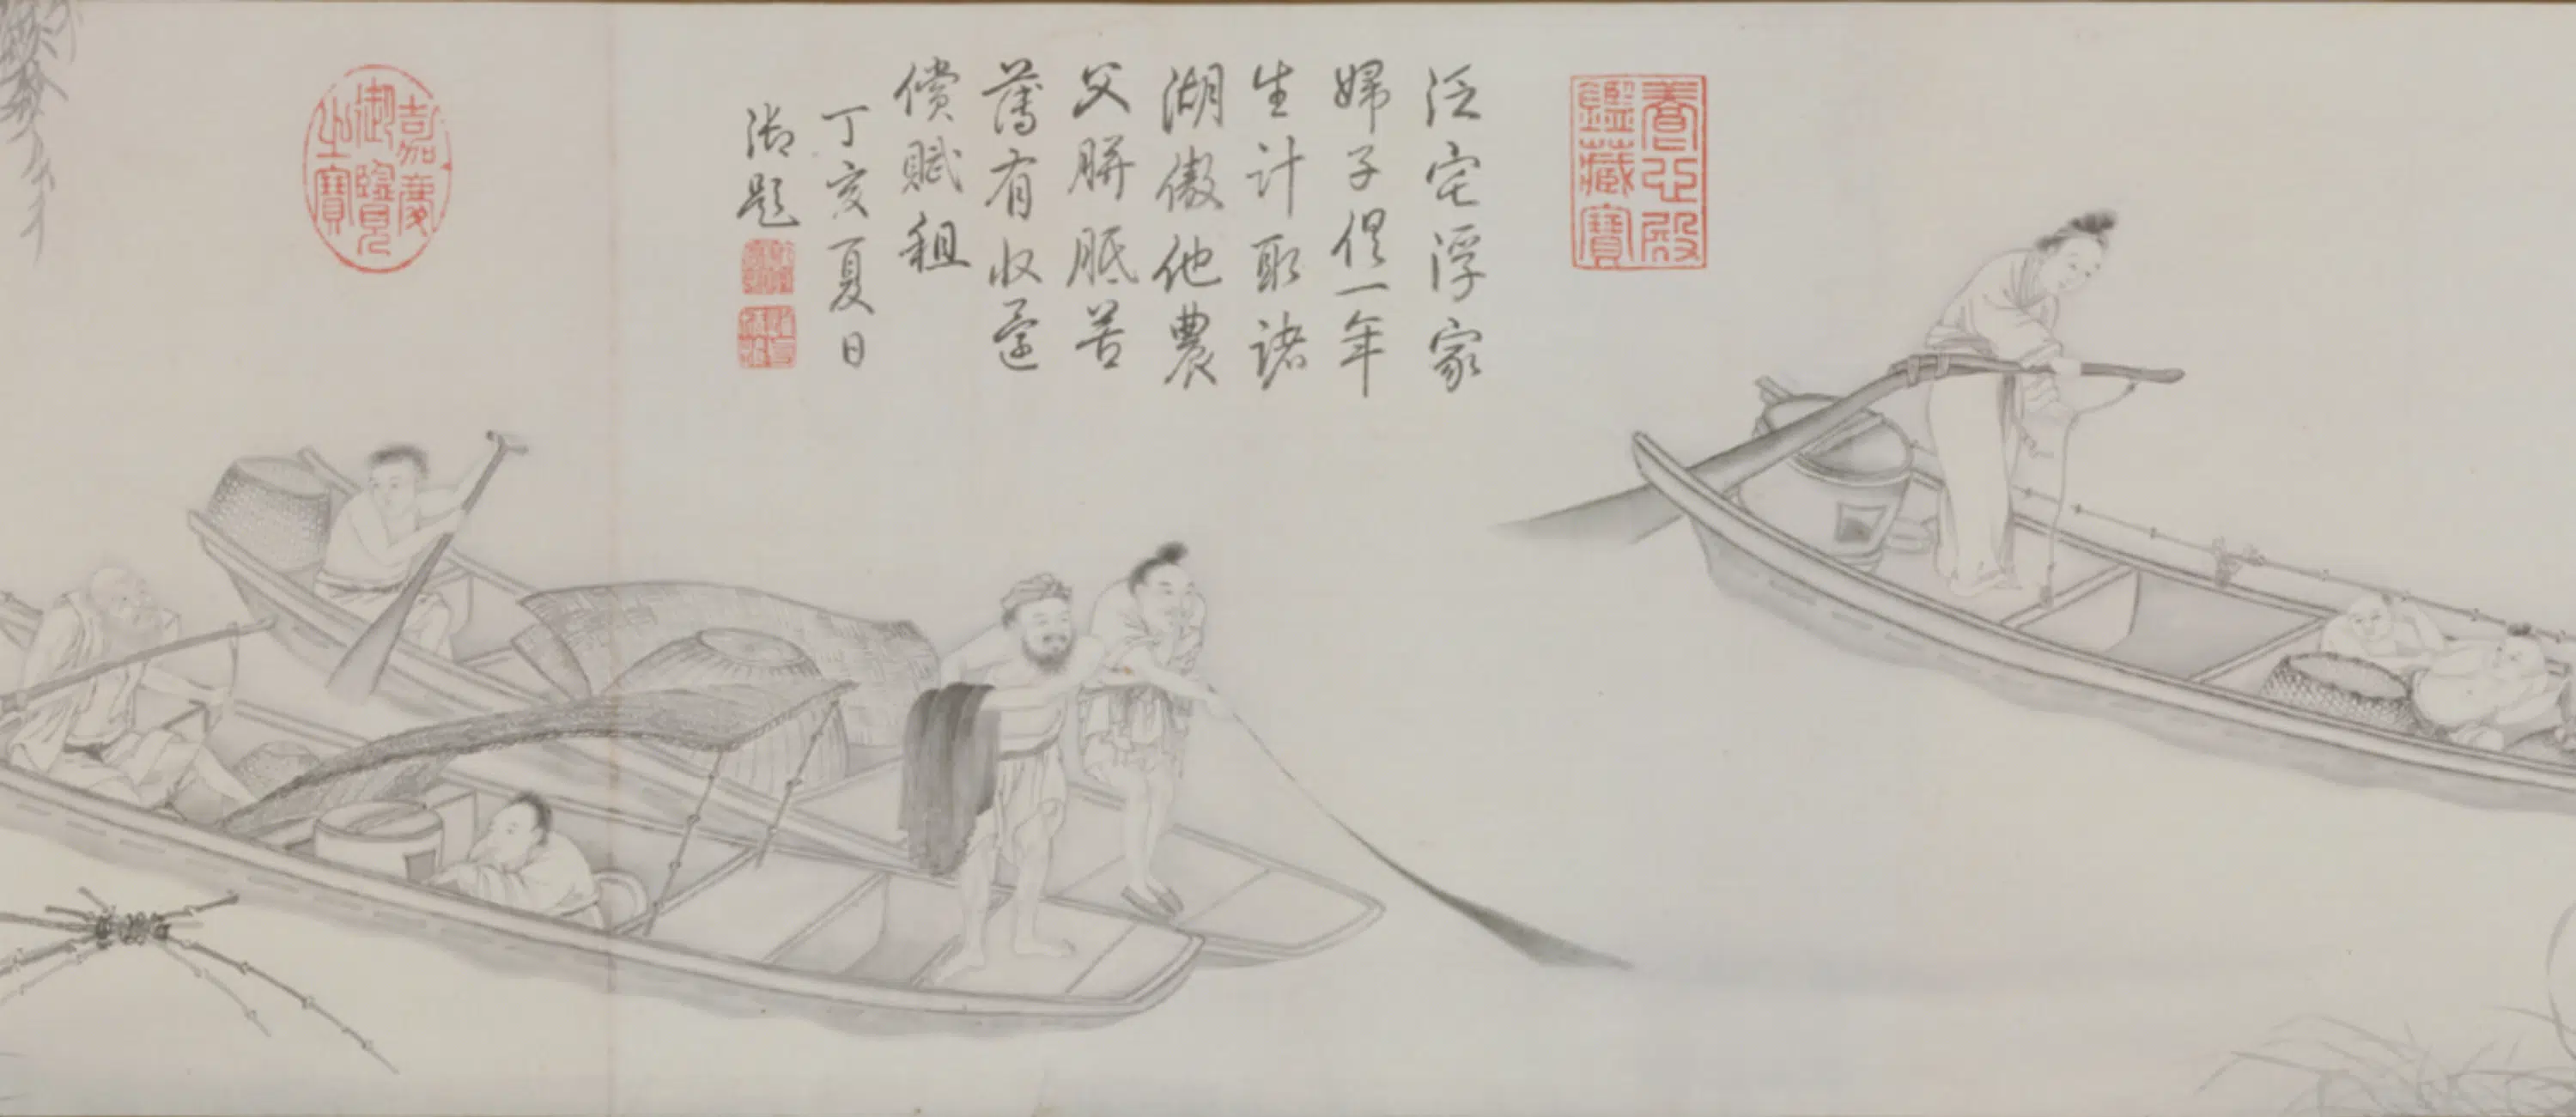 養心殿
鑑藏寶
泛宅浮家
婦子俱一年
生計取諸
湖傲他農
父胼胝苦
薄有收還
償賦租
丁亥夏日
御題
嘉慶
御覽
之寶